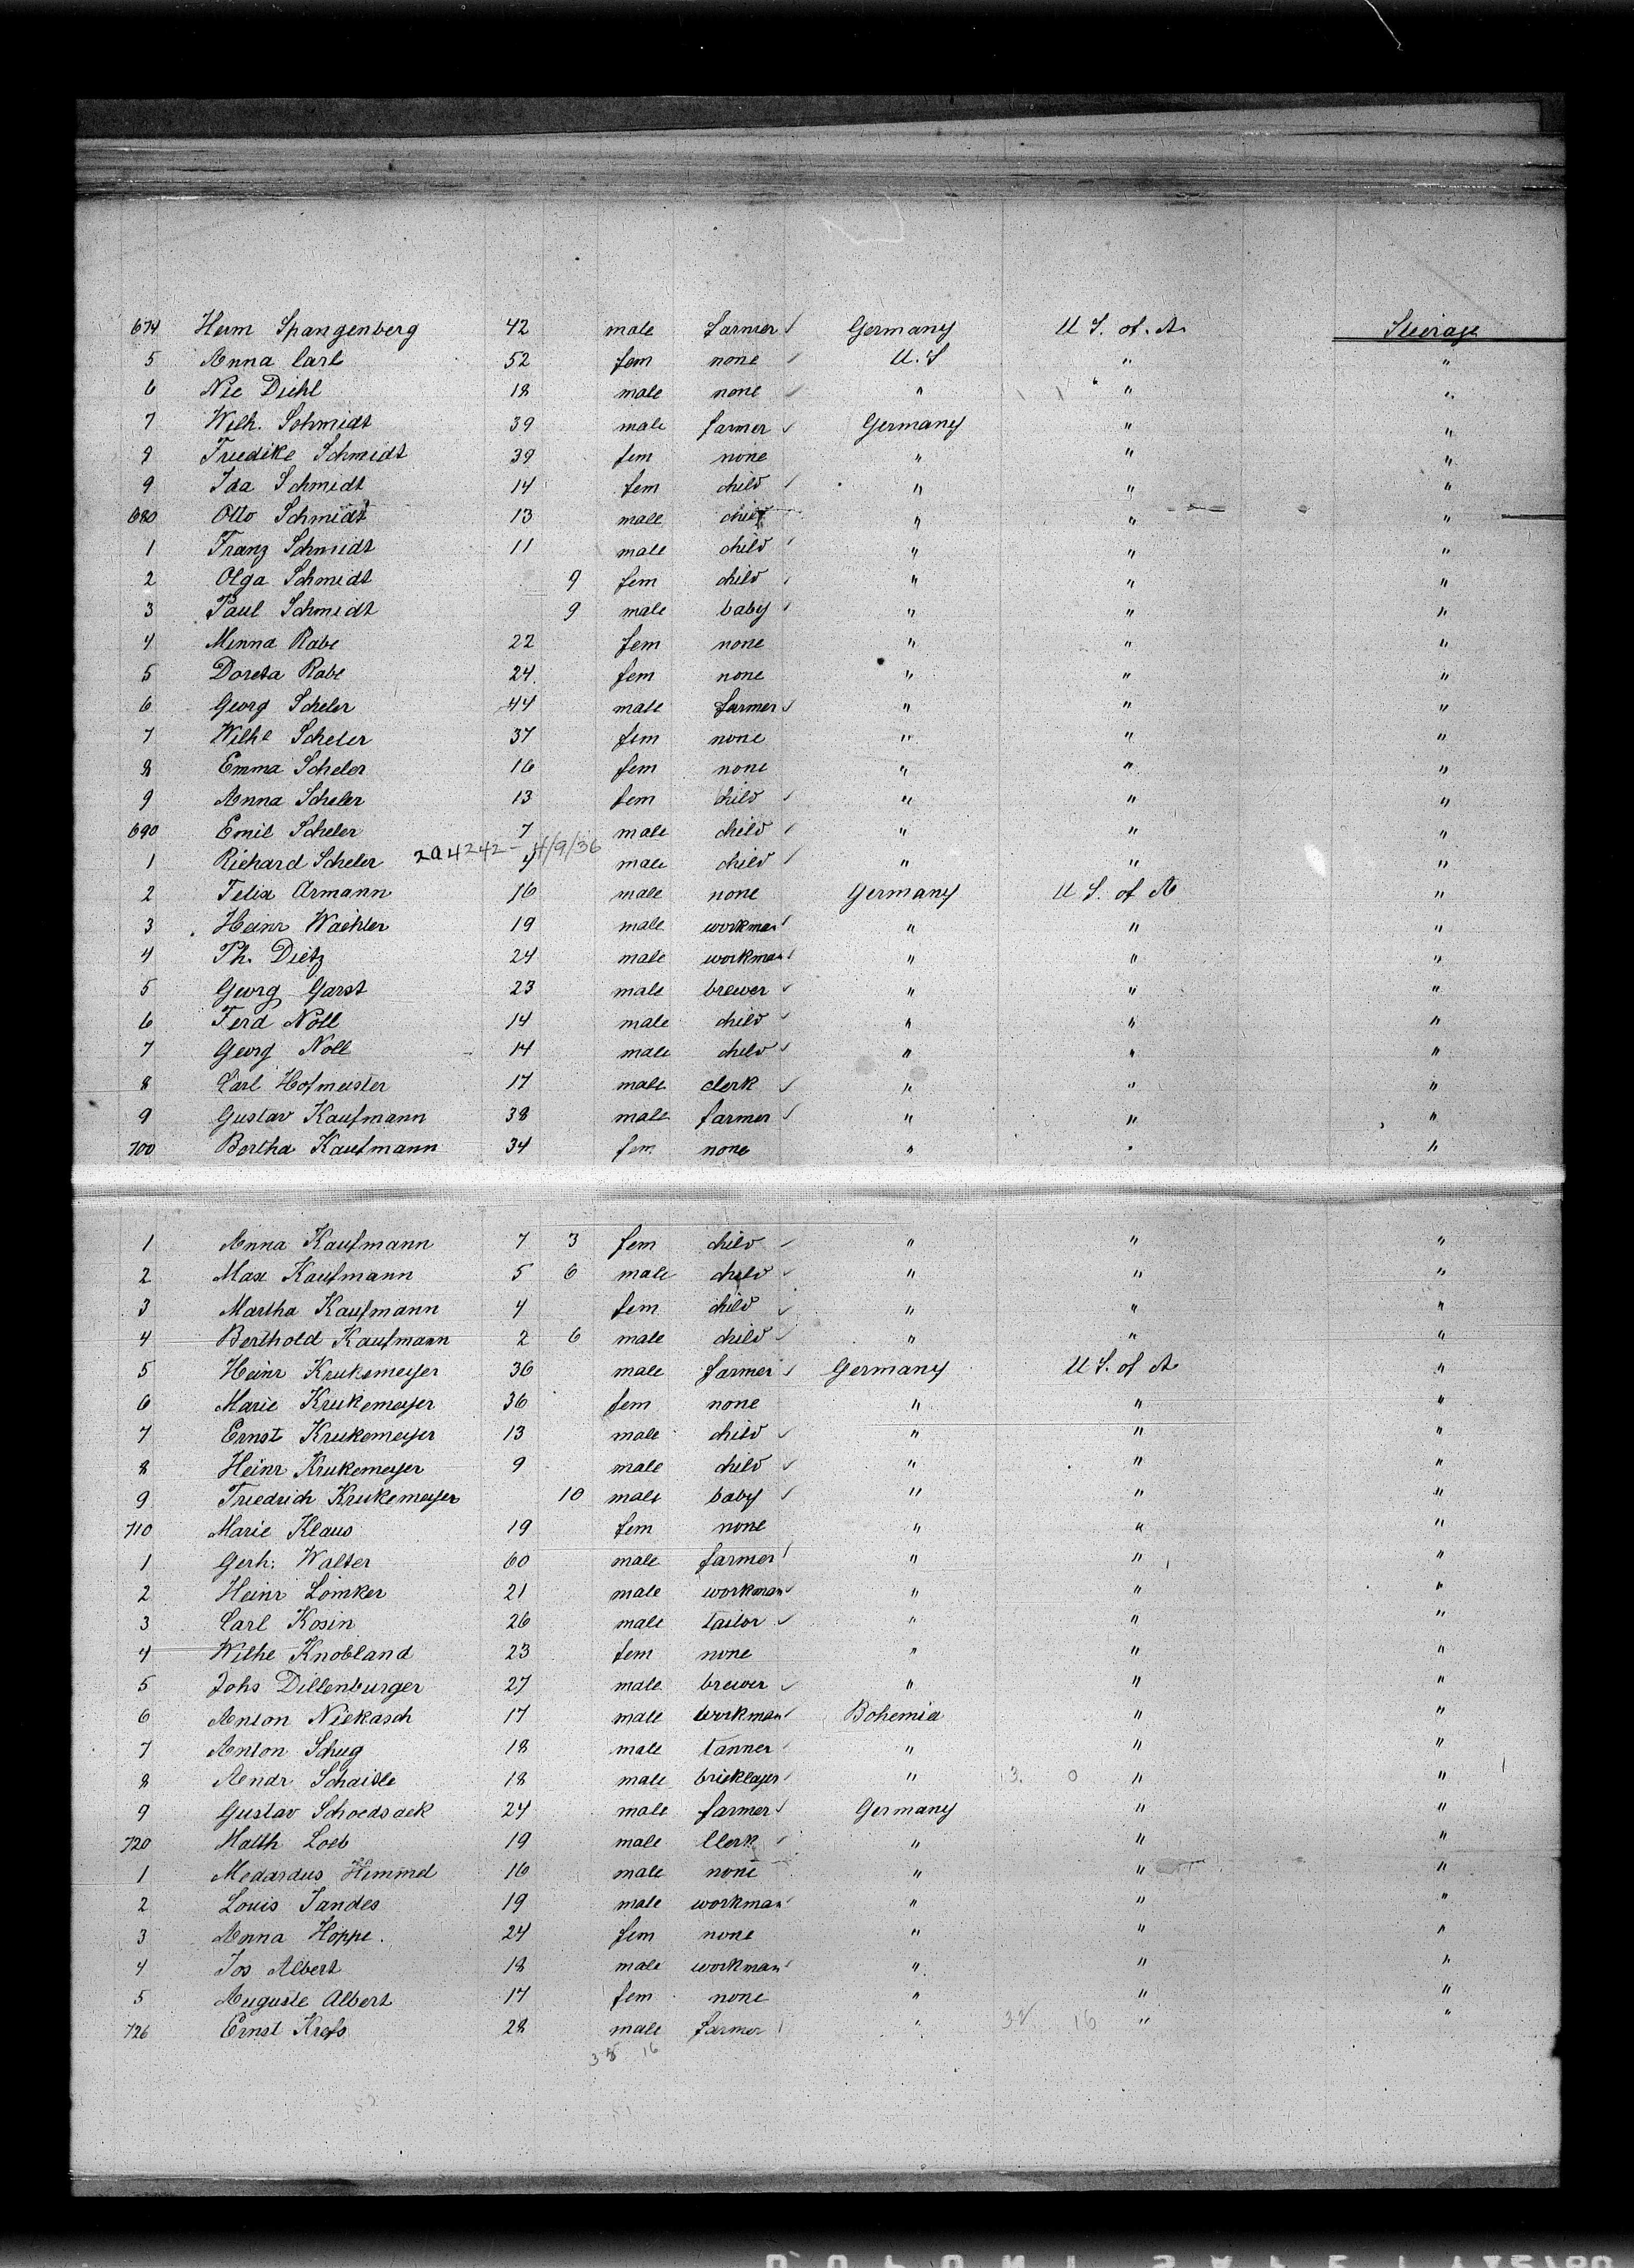 674 Herm Spangenberg 42 male farmer Germany U S. of. A. Steerage
5 Anna Carl 52 fem none U. S " "
6 Nic Diehl 18 male none " " "
7 Wilh. Schmidt 39 male farmer Germany " "
8 Friedike Schmidt 39 fem none " " "
9 Ida Schmidt 14 fem child " " "
680 Otto Schmidt 13 male child " " "
1 Franz Schmidt 11 male child " " "
2 Olga Schmidt 9 fem child " " "
3 Paul Schmidt 9 male baby " " "
4 Minna Rabe 22 fem none " " "
5 Doreta Rabe 24 fem none " " "
6 Georg Scheler 44 male farmer " " "
7 Wilhe Scheler 37 fem none " " "
8 Emma Scheler 16 fem none " " "
9 Anna Scheler 13 fem child " " "
690 Emil Scheler 7 male child " " "
2a4242 - 4/9/36
1 Richard Scheler 4 male child " " "
2 Felix Armann 16 male none Germany U S. of A "
3 Heinr Wachler 19 male workman " " "
4 Ph. Dietz 24 male workman " " "
5 Georg Garst 23 male brewer " " "
6 Ferd Noll 14 male child " " "
7 Georg Noll 14 male child " " "
8 Carl Hofmeister 17 male clerk " " "
9 Gustav Kaufmann 38 male farmer " " "
700 Bertha Kaufmann 34 fem none " " "
1 Anna Kaufmann 7 3 fem child " " "
2 Max Kaufmann 5 6 male child " " "
3 Martha Kaufmann 4 fem child " " "
4 Berthold Kaufmann 2 6 male child " " "
5 Heinr Krukemeyer 36 male farmer Germany U S. of A "
6 Marie Krukemeyer 36 fem none " " "
7 Ernst Krukemeyer 13 male child " " "
8 Heinr Krukemeyer 9 male child " " "
9 Friedrich Krukemeyer 10 male baby " " "
710 Marie Klaus 19 fem none " " "
1 Gerh: Walter 60 male farmer " " "
2 Heinr Lömker 21 male workman " " "
3 Carl Kosin 26 male tailor " " "
4 Wilhe Knobland 23 fem none " " "
5 Johs Dillenburger 27 male brewer " " "
6 Anton Niekasch 17 male workman Bohemia " "
7 Anton Schug 18 male tanner " " "
8 Andr Schaible 18 male bricklayer " " "
9 Gustav Schoedsack 24 male farmer Germany " "
720 Matth Loeb 19 male Clerk " " "
1 Medardus Himmel 16 male none " " "
2 Louis Jandes 19 male workman " " "
3 Anna Hoppe. 24 fem none " " "
4 Jos Albert 18 male workman " " "
5 Auguste Albert 17 fem none " " "
726 Ernst Krefs 28 male farmer " " "
38 16